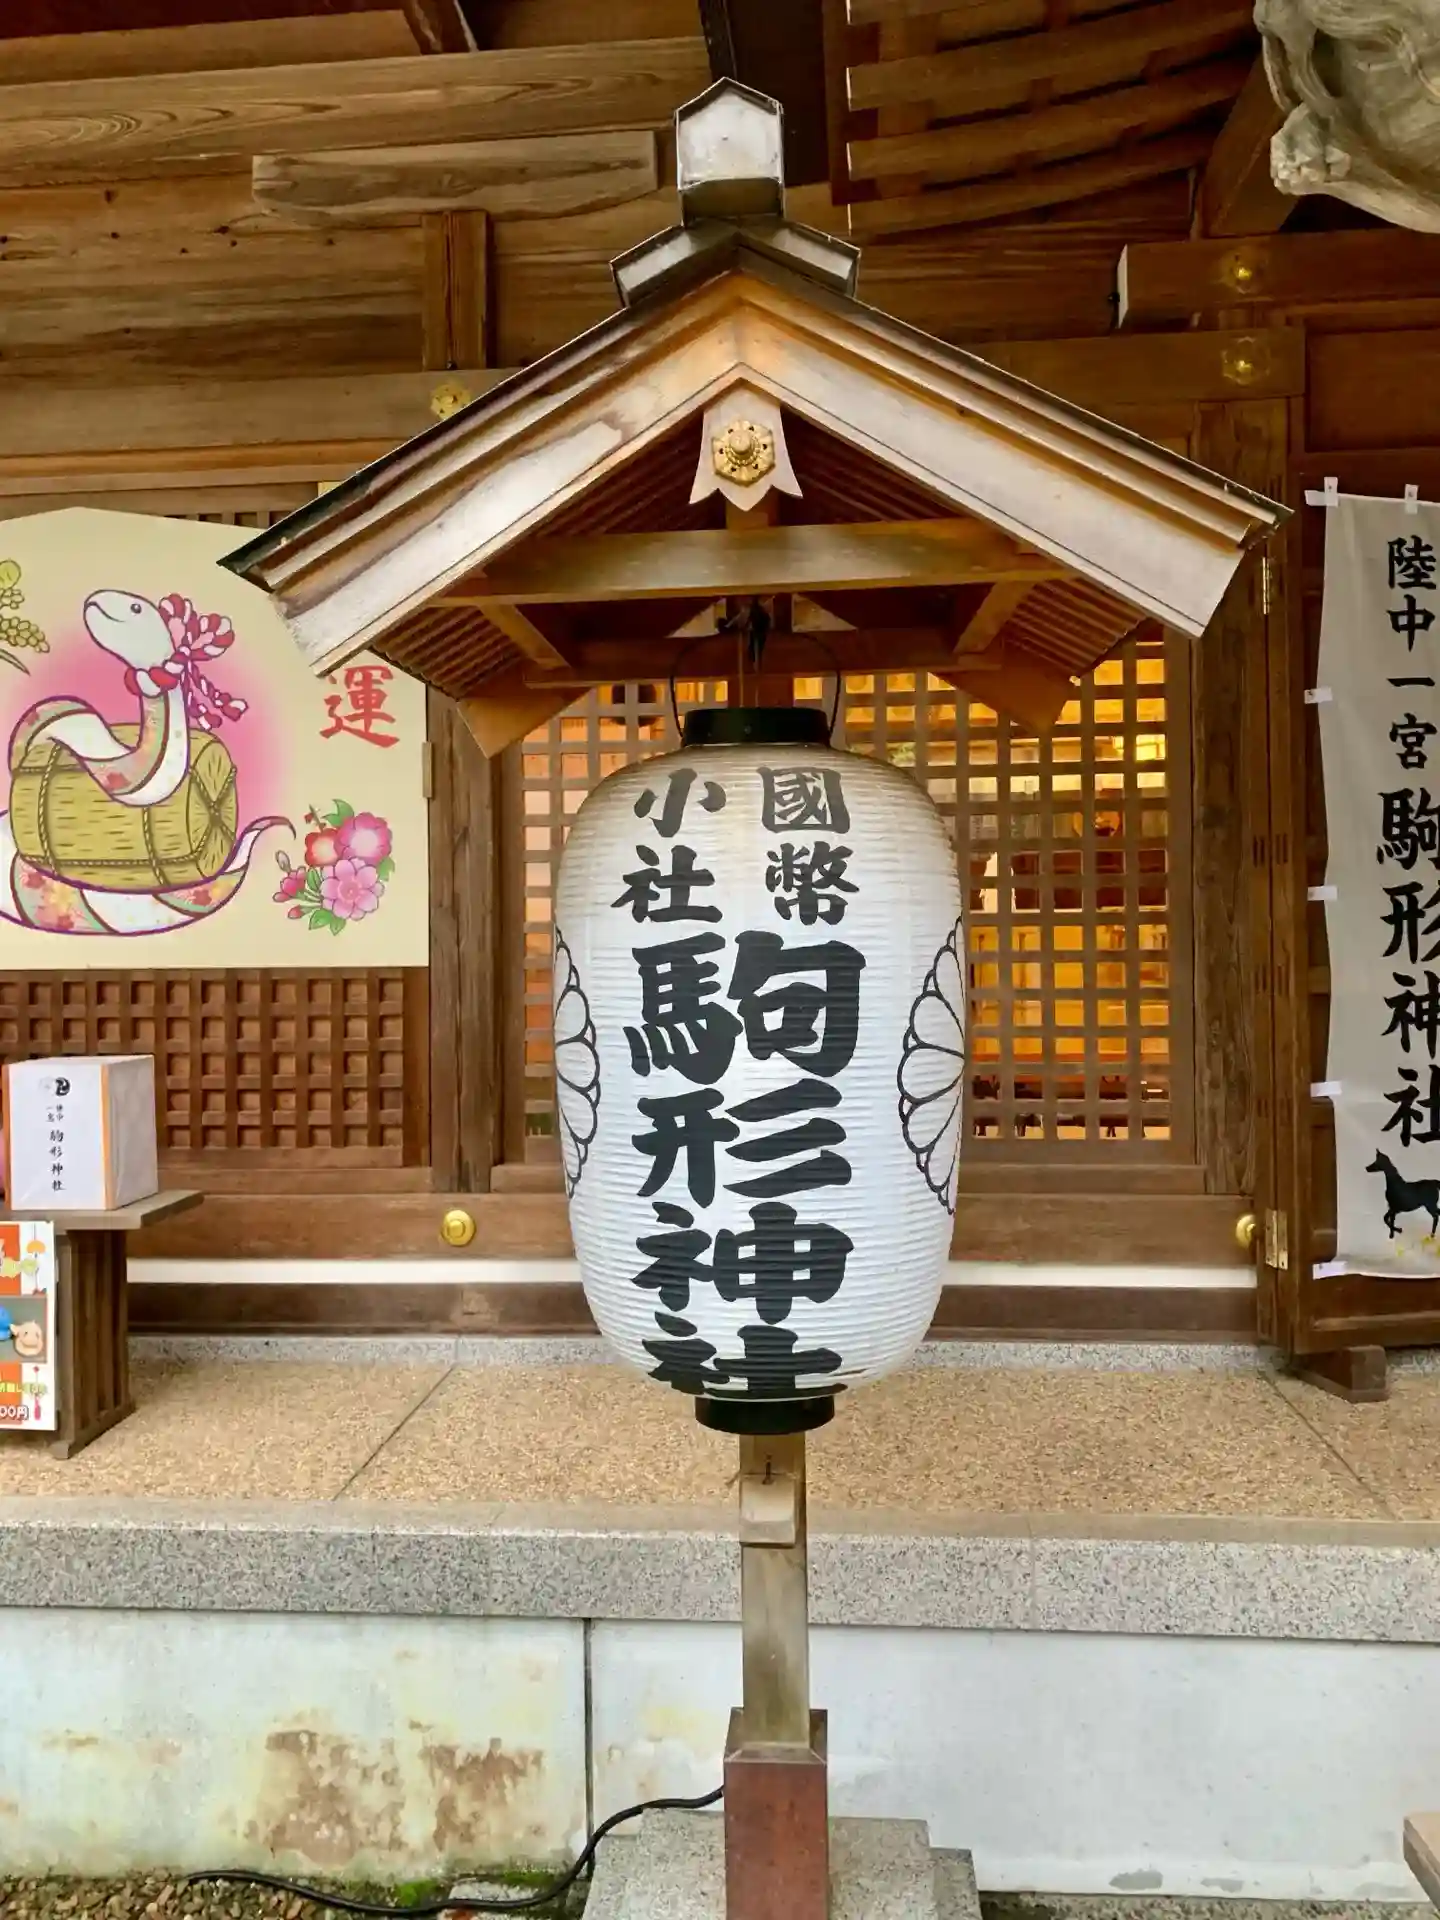 國幣
小社
駒形神社
陸中一宮
駒形神社
運
陸中
一宮
駒形神社
00円